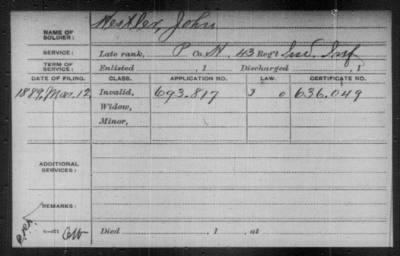 NAME OF SOLDIER: John
SERVICE: Late rank, P Co. H, 43 Reg't Ind. Inf
TERM OF SERVICE: Enlisted , 1 Discharged , 1
DATE OF FILING. CLASS. APPLICATION NO. LAW. CERTIFICATE NO.
1889, Mar. 12, Invalid, 693.817 636.049
Widow,
Minor,
ADDITIONAL SERVICES:
REMARKS:
Died , 1 , at